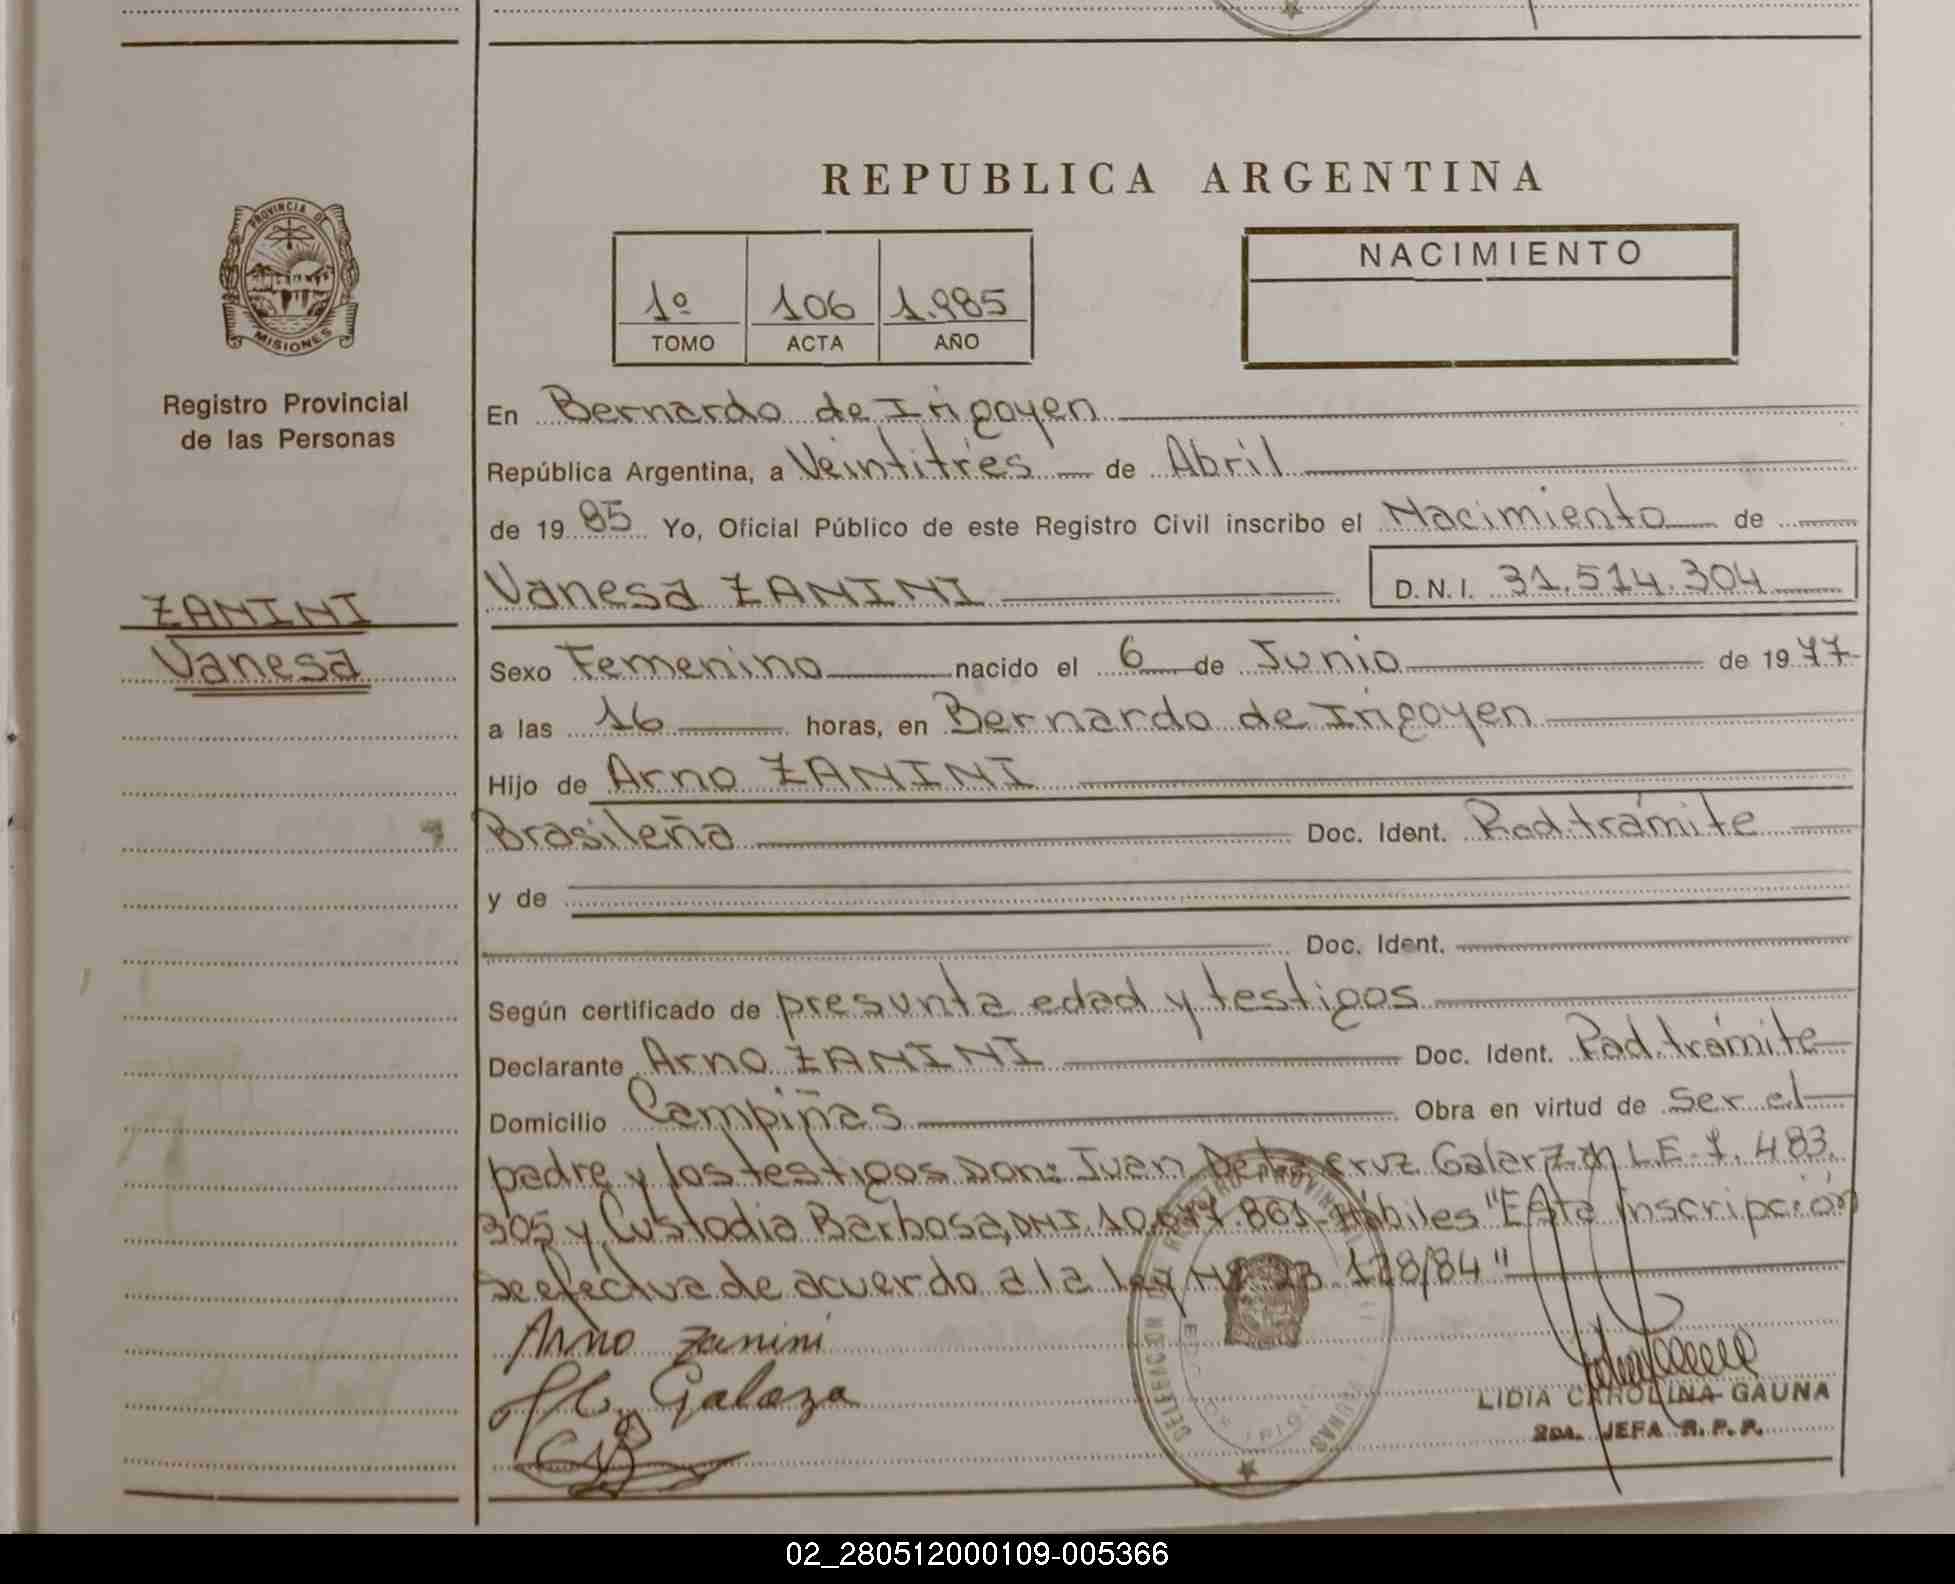 REPUBLICA ARGENTINA
PROVINCIA DE
MISIONES
Registro Provincial
de las Personas
ZANINI
Vanesa
1º 106 1.985
TOMO ACTA AÑO
NACIMIENTO
En Bernardo de Irigoyen
República Argentina, a Veintitrés de Abril
de 1985 Yo, Oficial Público de este Registro Civil inscribo el Nacimiento de
Vanesa ZANINI D.N.I. 31.514.304
Sexo Femenino nacido el 6 de Junio de 1977
a las 16 horas, en Bernardo de Irigoyen
Hijo de Arno ZANINI
Brasileña Doc. Ident. Rad.trámite
y de
Doc. Ident.
Según certificado de presunta edad y testigos
Declarante Arno ZANINI Doc. Ident. Rad.trámite
Domicilio Campiñas Obra en virtud de ser el
padre y los testigos Don: Juan De la cruz Galarza L.E. 7.483.
305 y Custodia Barbosa, DNI. 10.677.861. Hábiles "Esta inscripción
se efectua de acuerdo a la ley Nº 23 128/84"
Arno Zanini
Galaza
LIDIA CAROLINA GAUNA
2DA. JEFA R.P.P.
02_280512000109-005366